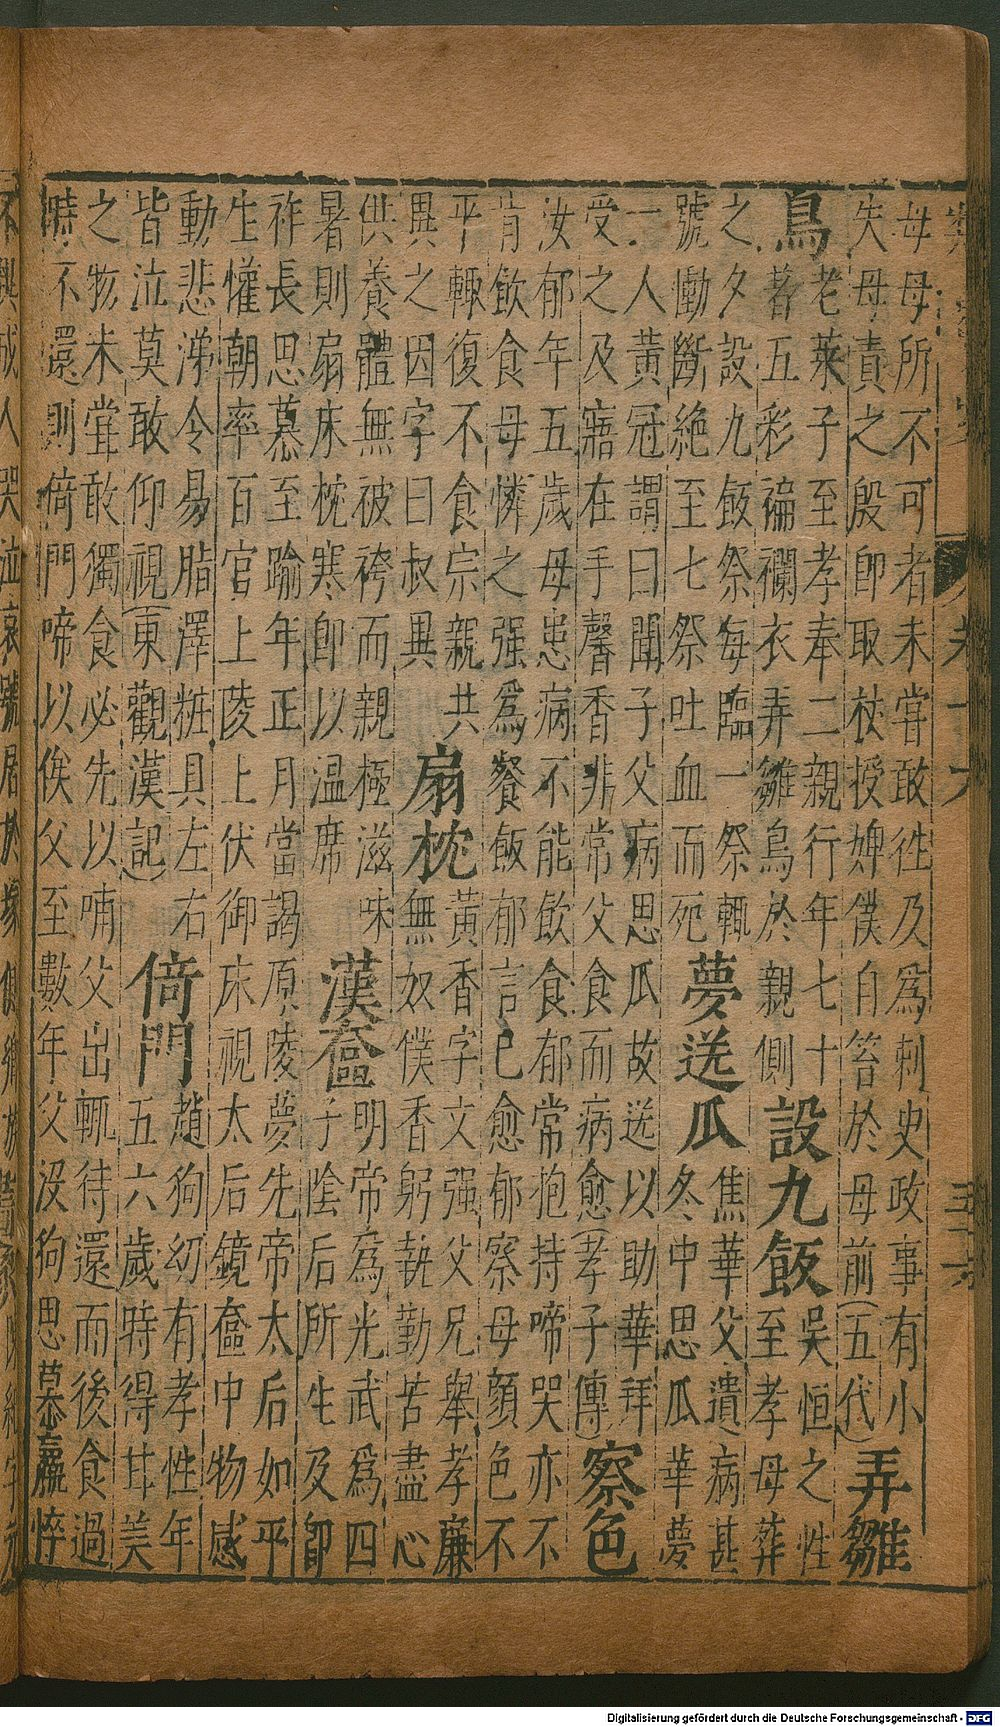 母母所不可者未嘗敢往及爲刺史政事有小
失母責之殷即取杖授婢僕自笞於母前(五代)
弄雛
鳥
老萊子至孝奉二親行年七十
著五彩褊襴衣弄雛鳥於親側
設九飯
吳恒之性
至孝母葬
之夕設九飯祭每臨一祭輒
號慟斷絶至七祭吐血而死
夢送瓜
焦華父遺病甚
冬中思瓜華夢
一人黃冠謂曰聞子父病思瓜故送以助華拜
受之及寤在手馨香非常父食而病愈(孝子傳)
察色
汝郁年五歲母患病不能飲食郁常抱持啼哭亦不
肯飲食母憐之强爲餐飯郁言已愈郁察母顔色不
平輒復不食宗親共
異之因字曰叔異
扇枕
黃香字文强父兄舉孝廉
無奴僕香躬執勤苦盡心
供養體無被袴而親極滋味
暑則扇床枕寒即以温席
漢奩
明帝爲光武爲四
子陰后所生及即
祚長思慕至踰年正月當謁原陵夢先帝太后如平
生懽朝率百官上陵上伏御床視太后鏡奩中物感
動悲涕令易脂澤粧具左右
皆泣莫敢仰視(東觀漢記)
倚門
趙狗幼有孝性年
五六歲時得甘美
之物未嘗敢獨食必先以哺父出輒待還而後食過
時不還則倚門啼以俟父至數年父没狗思慕羸悴
Digitalisierung gefördert durch die Deutsche Forschungsgemeinschaft - DFG